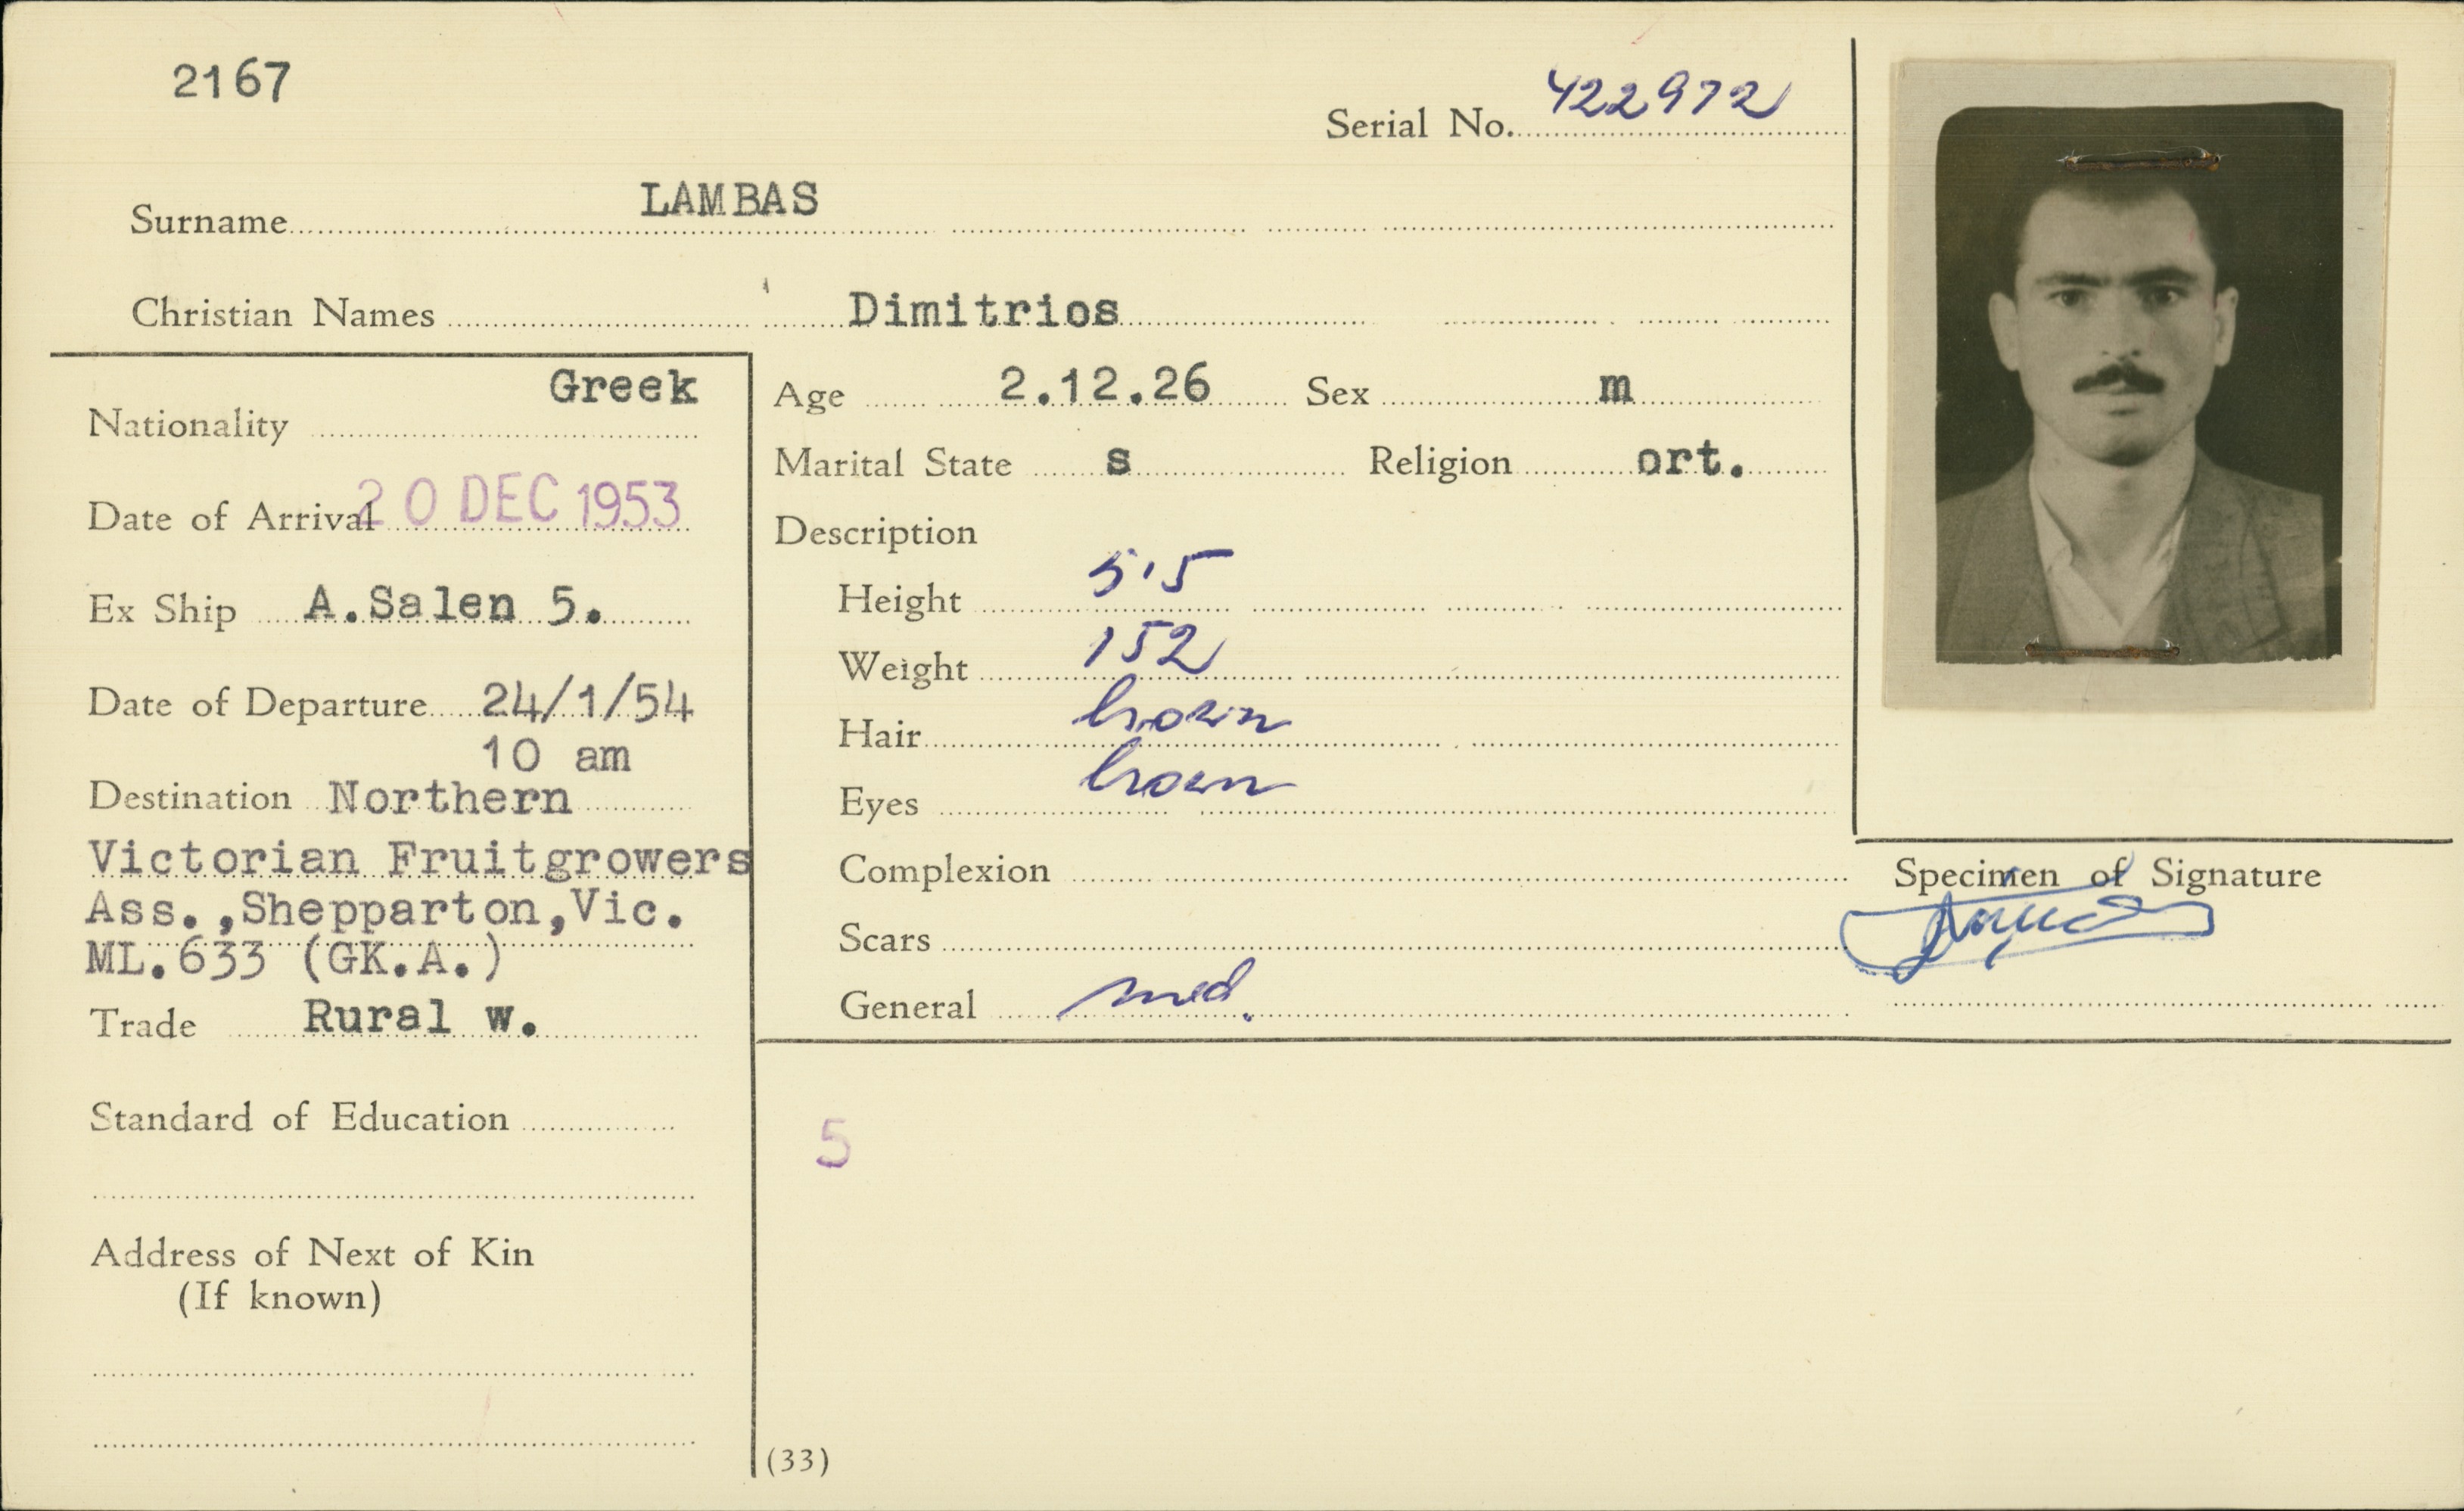 2167
Serial No. 422972
Surname LAMBAS
Christian Names Dimitrios
Nationality Greek
Date of Arrival 20 DEC 1953
Ex Ship A.Salen 5.
Date of Departure 24/1/54
10 am
Destination Northern
Victorian Fruitgrowers
Ass.,Shepparton,Vic.
ML.633 (GK.A.)
Trade Rural w.
Standard of Education
Address of Next of Kin
(If known)
Age 2.12.26 Sex m
Marital State s Religion ort.
Description
Height 5'5
Weight 152
Hair brown
Eyes brown
Complexion
Scars
General med.
5
(33)
Specimen of Signature